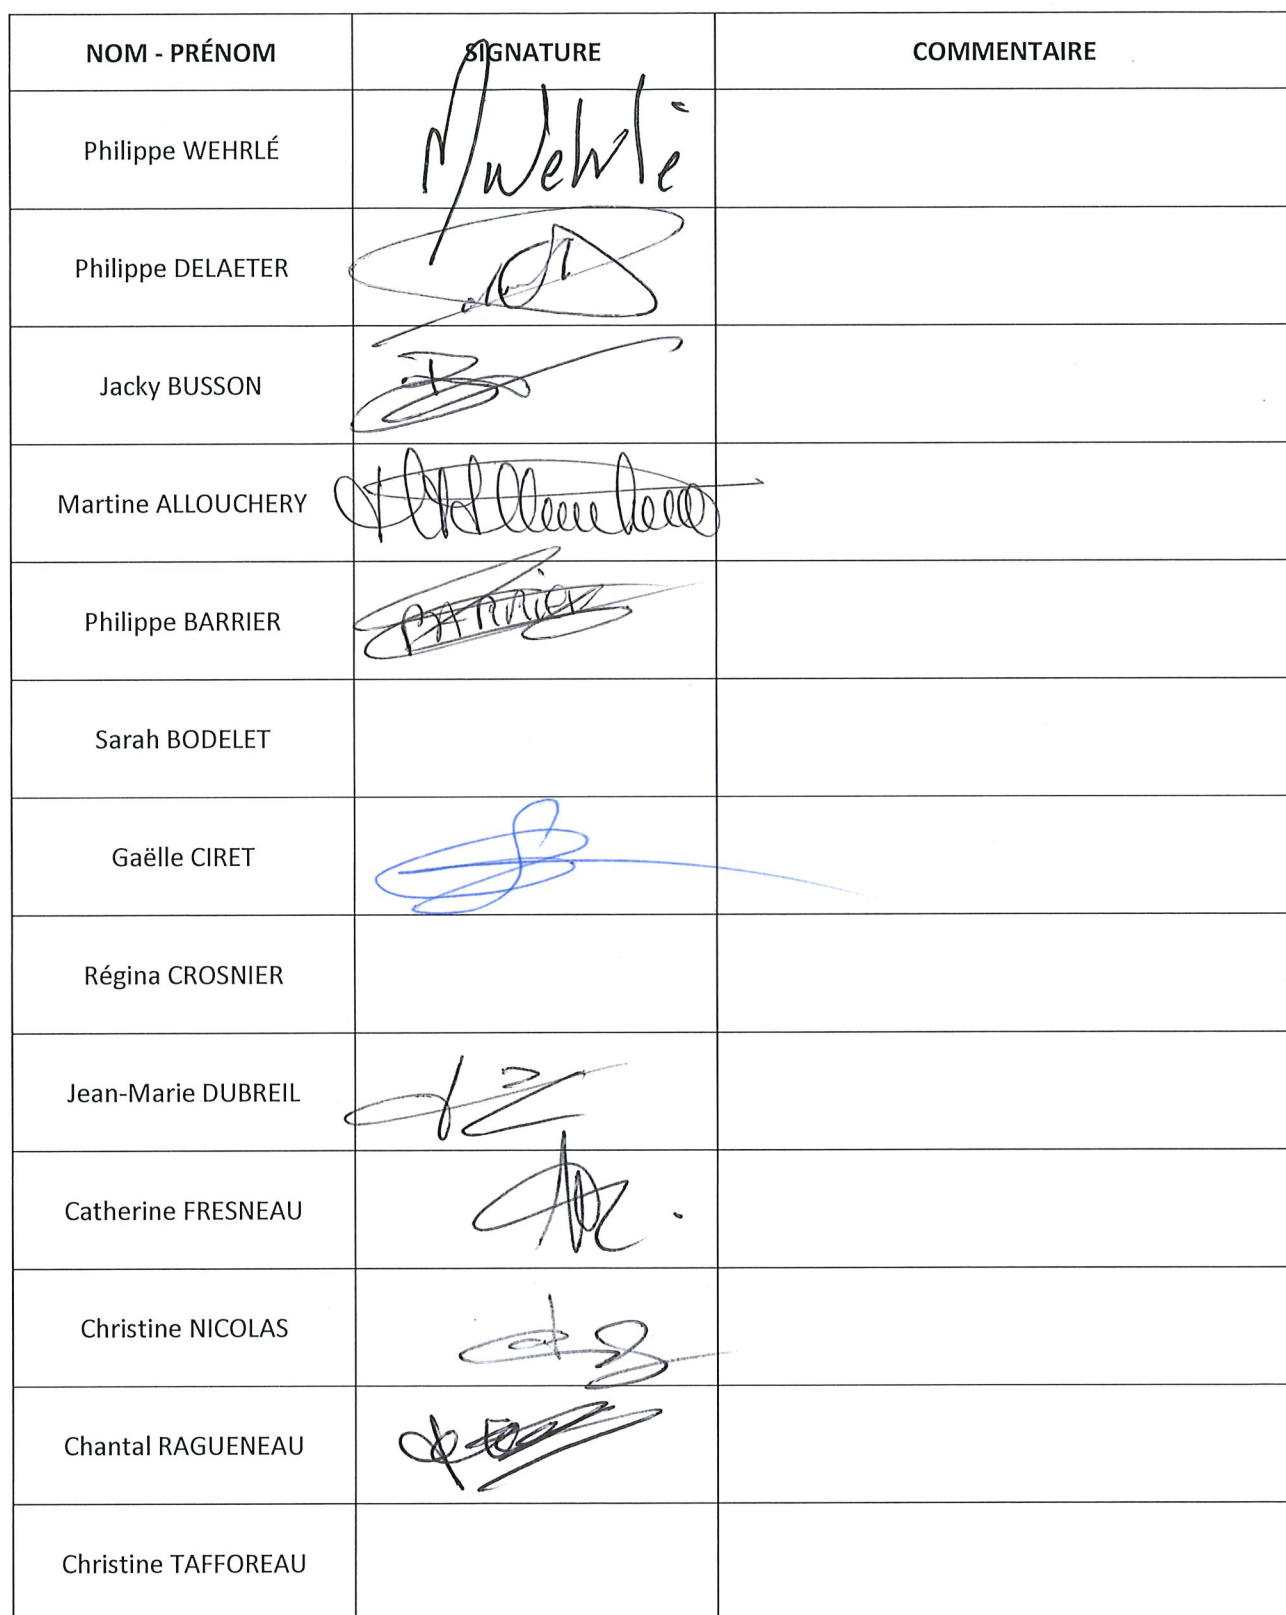 NOM - PRÉNOM SIGNATURE COMMENTAIRE
Philippe WEHRLÉ Wehrlé
Philippe DELAETER
Jacky BUSSON
Martine ALLOUCHERY
Philippe BARRIER BARRIER
Sarah BODELET
Gaëlle CIRET
Régina CROSNIER
Jean-Marie DUBREIL
Catherine FRESNEAU
Christine NICOLAS
Chantal RAGUENEAU
Christine TAFFOREAU